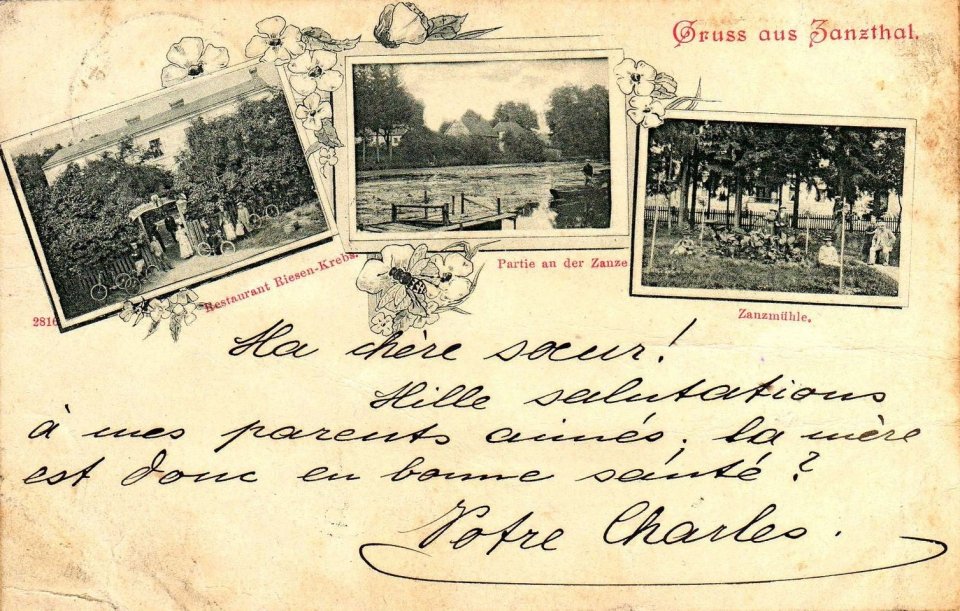 Gruss aus Zanzthal.
Restaurant Riesen-Krebs.
Partie an der Zanze
Zanzmühle.
2816
Ma chère sœur!
Mille salutations
à mes parents aimés, la mère
est donc en bonne santé?
Votre Charles.